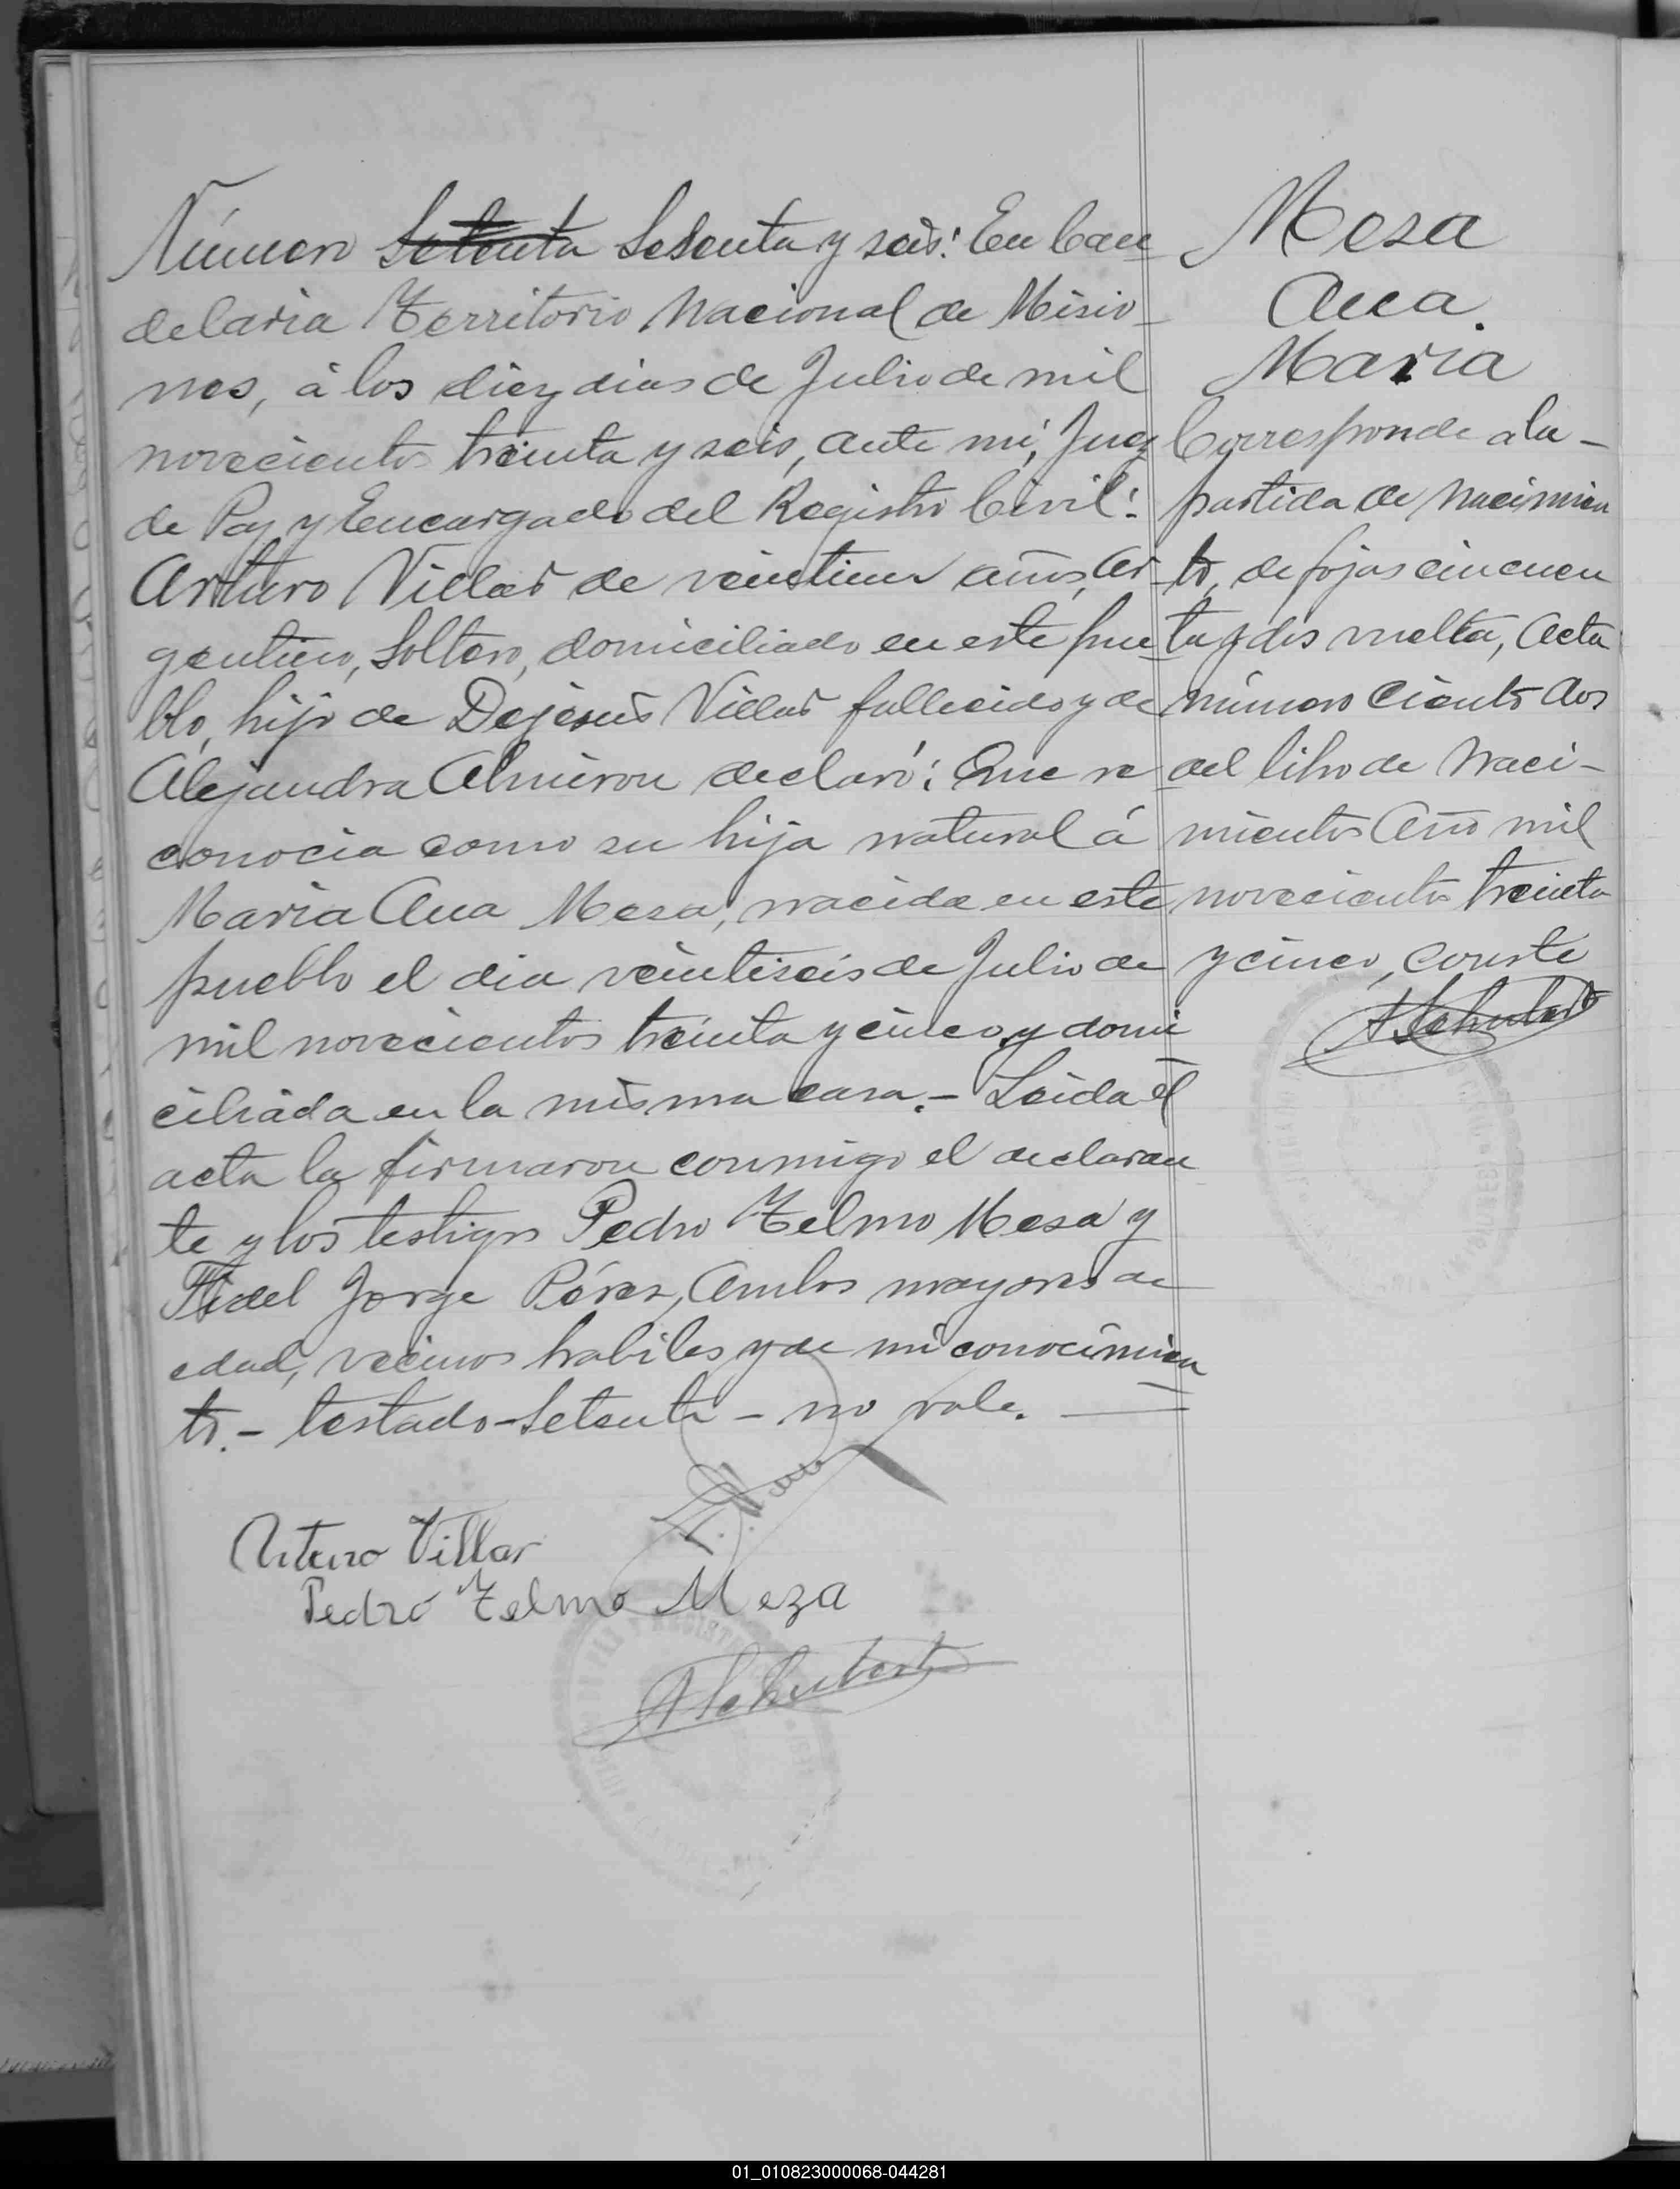 Número Setenta Sesenta y seis: En Can
delaria Territorio Nacional de Misio-
nes, á los diez dias de Julio de mil
novecientos treinta y seis, ante mi, Juez
de Paz y Encargado del Registro Civil:
Arturo Villar de veintiun años, Ar-
gentino, Soltero, domiciliado en este pue-
blo, hijo de Dejesús Villar fallecido y de
Alejandra Almiron declaró: Que re
conocia como su hija natural á
Maria Ana Mesa, nacida en este
pueblo el dia veintiseis de Julio de
mil novecientos treinta y cinco y domi
ciliada en la misma casa.- Leida el
acta la firmaron conmigo el declaran
te y los testigos Pedro Telmo Mesa y
Fidel Jorge Pérez, Ambos mayores de
edad, vecinos habiles y de mi conocimien
to.- testado-Setenta - no vale.
Arturo Villar
Pedro Telmo Meza
ASchubert
Mesa
Ana
Maria
Corresponde a la-
partida de nacimien
to, de fojas cincuen
ta y dos vuelta, Acta
número Ciento dos
del libro de Naci-
mientos Año mil
novecientos treinta
y cinco, conste
ASchubert
01_010823000068-044281